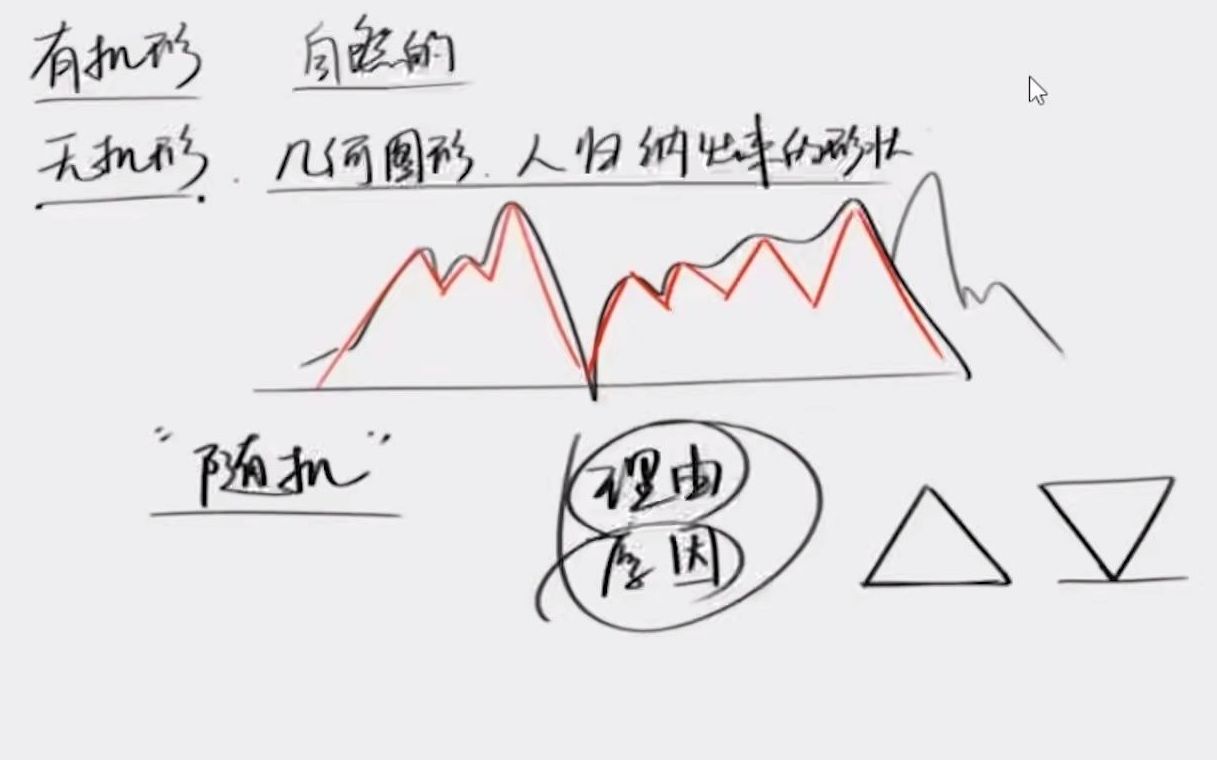 有机形 自然的
无机形. 几何图形. 人归纳出来的形状
"随机"
理由
原因